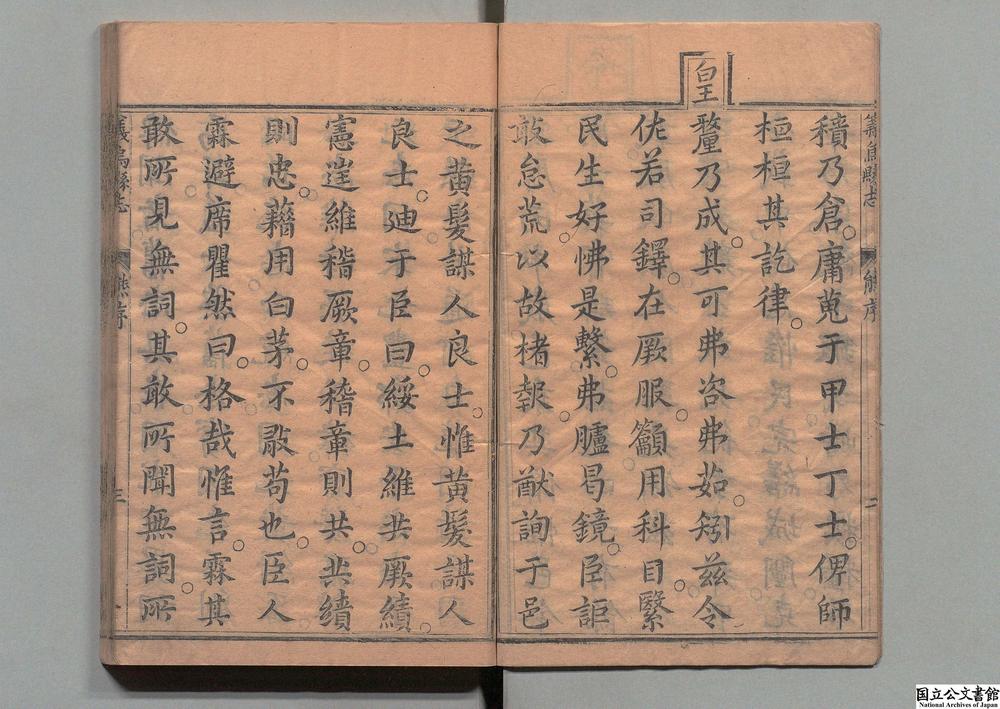 義烏縣志
熊序
二
積乃倉。庸蒐于甲士丁士。俾師
桓桓其訖律。
皇
釐乃成。其可弗咨弗茹。矧茲令
佐若司鐸。在厥服。籲用科目。緊
民生好怫是繫。弗臚曷鏡。臣詎
敢怠荒。以故楮報。乃猷詢于邑
之黃髮謀人良士。惟黃髮謀人
良士。迪于臣曰。綏土維共厥績。
憲逴維稽厥章。稽章則共。共績
則忠。藉用白茅。不敢苟也。臣人
霖避席瞿然曰。格哉惟言。霖其
敢所見無詞。其敢所聞無詞。所
義烏縣志
熊序
三
国立公文書館
National Archives of Japan